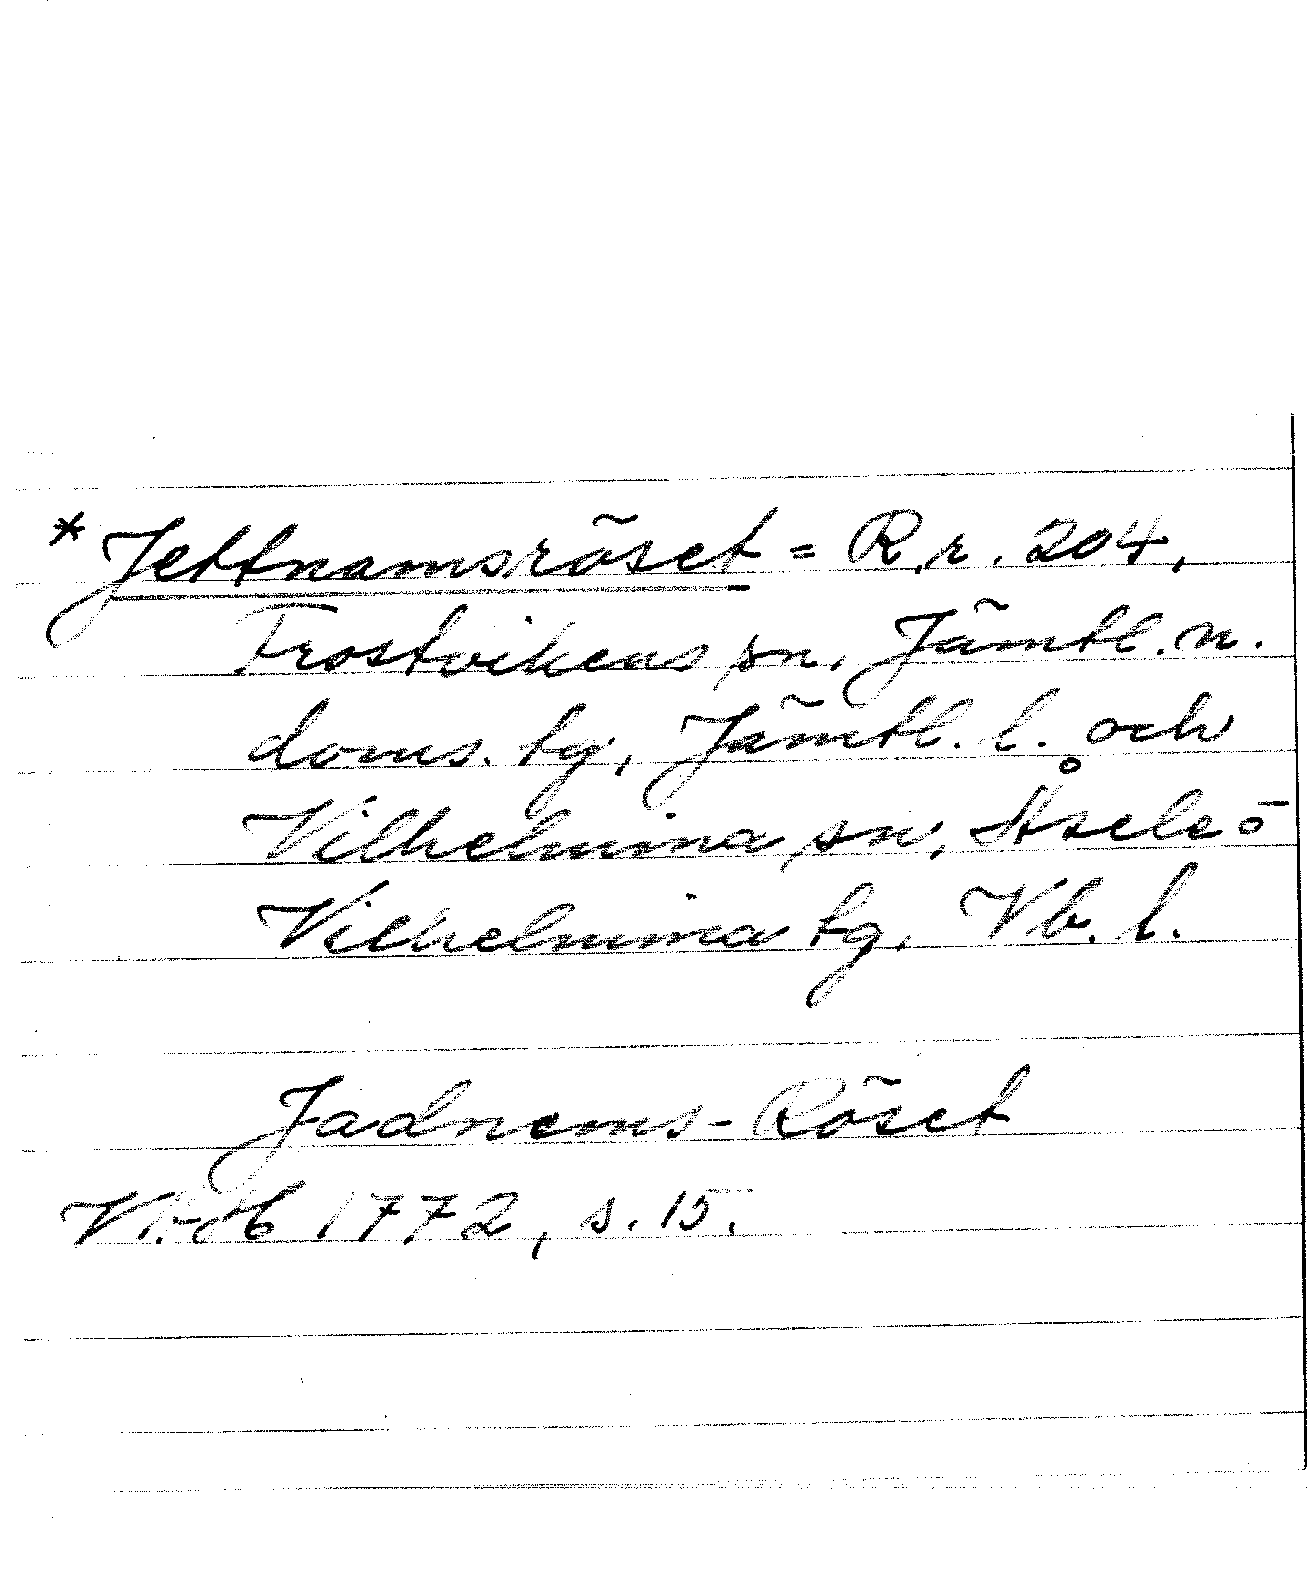 * Jettnamsröset = R.r. 204,
Frostvikens sn, Jämtl. n.
doms. tg, Jämtl. l. och
Vilhelmina sn, Åsele o
Vilhelmina tg, Vb. l.
Jadnems-Röset
1772, s. 15.